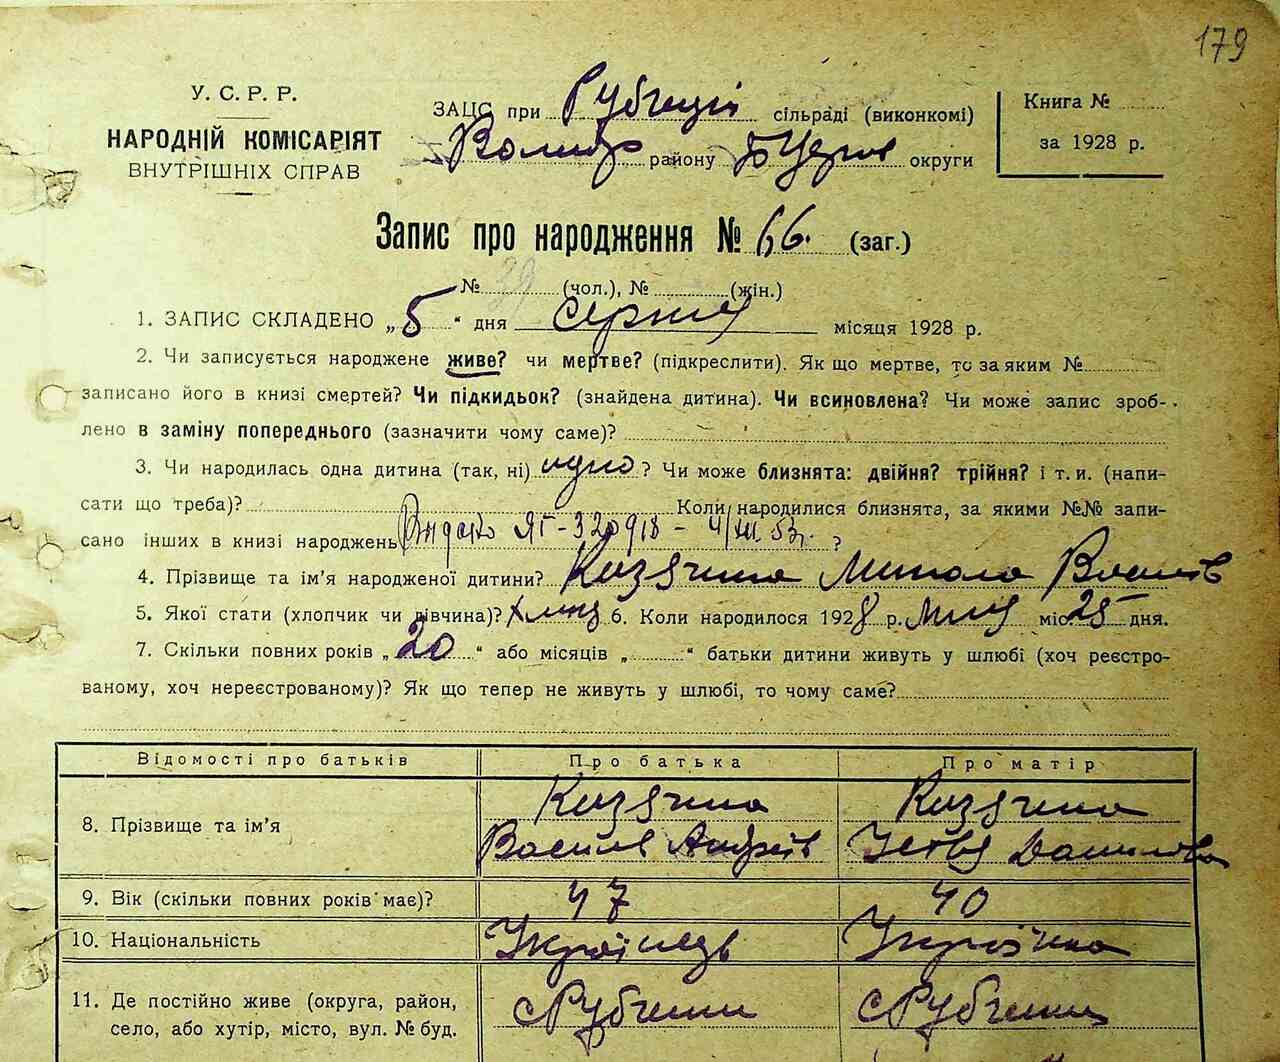 179
У. С. Р. Р.
НАРОДНІЙ КОМІСАРІЯТ
ВНУТРІШНІХ СПРАВ
ЗАЦС при Рубчецькі сільраді (виконкомі)
району округи
Книга №
за 1928 р.
Запис про народження № 66. (заг.)
№ 39 (чол.), № (жін.)
1. ЗАПИС СКЛАДЕНО „5“ дня серпня місяця 1928 р.
2. Чи записується народжене живе? чи мертве? (підкреслити). Як що мертве, то за яким №
записано його в книзі смертей? Чи підкидьок? (знайдена дитина). Чи всиновлена? Чи може запис зроб-
лено в заміну попереднього (зазначити чому саме)?
3. Чи народилась одна дитина (так, ні) одно? Чи може близнята: двійня? трійня? і т. и. (напи-
сати що треба)? Коли народилися близнята, за якими №№ запи-
сано інших в книзі народжень ЯГ-320918 - 4/III.53. ?
4. Прізвище та ім’я народженої дитини? Казячина Микола Василів
5. Якої стати (хлопчик чи дівчина)? хлопц 6. Коли народилося 1928 р. міс. 25 дня.
7. Скільки повних років „20“ або місяців „ “ батьки дитини живуть у шлюбі (хоч реєстро-
ваному, хоч нереєстрованому)? Як що тепер не живуть у шлюбі, то чому саме?
Відомості про батьків Про батька Про матір
8. Прізвище та ім’я Казячина Казячина
Василь Андреїв Данилова
9. Вік (скільки повних років має)? 47 40
10. Національність Українець Українка
11. Де постійно живе (округа, район, с Рубченки с Рубченки
село, або хутір, місто, вул. № буд.